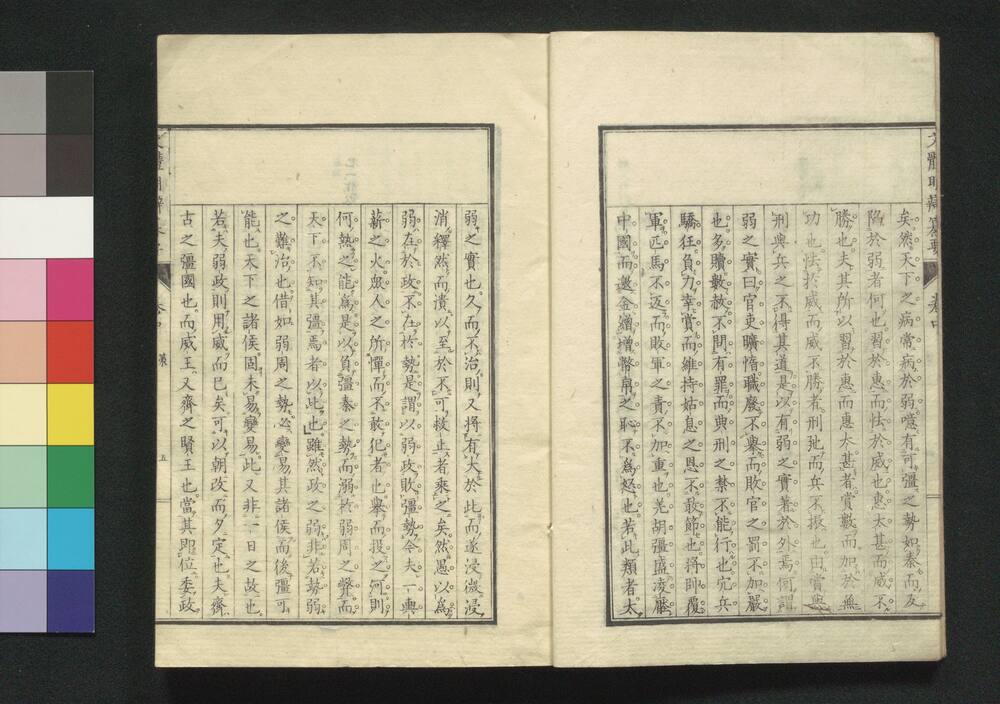 文體明辯纂要 卷中
矣然天下之病常病於弱噫有可彊之勢如秦而反
陷於弱者何也習於惠而怯於威也惠太甚而威不
勝也夫其所以習於惠而惠太甚者賞數而加於無
功也怯於威而威不勝者刑弛而兵不振也由賞與
刑與兵之不得其道是以有弱之實著於外焉何謂
弱之實曰官吏曠惰職廢不舉而敗官之罰不加嚴
也多贖數赦不問有罪而典刑之禁不能行也宂兵
驕狂負力幸賞而維持姑息之恩不敢節也將帥覆
軍匹馬不返而敗軍之責不加重也羌胡彊盛凌壓
中國而邀金繒增幣帛之恥不爲怒也若此類者太
弱之實也久而不治則又將有大於此而遂浸微浸
消釋然而潰以至於不可救止者乘之矣然愚以爲
弱在於政不在於勢是謂以弱政敗彊勢今夫一輿
薪之火衆人之所憚而不敢犯者也舉而投之河則
何熱之能爲是以負彊秦之勢而溺於弱周之弊而
天下不知其彊焉者以此也雖然政之弱非若勢弱
之難治也借如弱周之勢必變易其諸侯而後彊可
能也天下之諸侯固未易變易此又非一日之故也
若夫弱政則用威而已矣可以朝改而夕定也夫齊
古之彊國也而威王又齊之賢王也當其即位委政
五